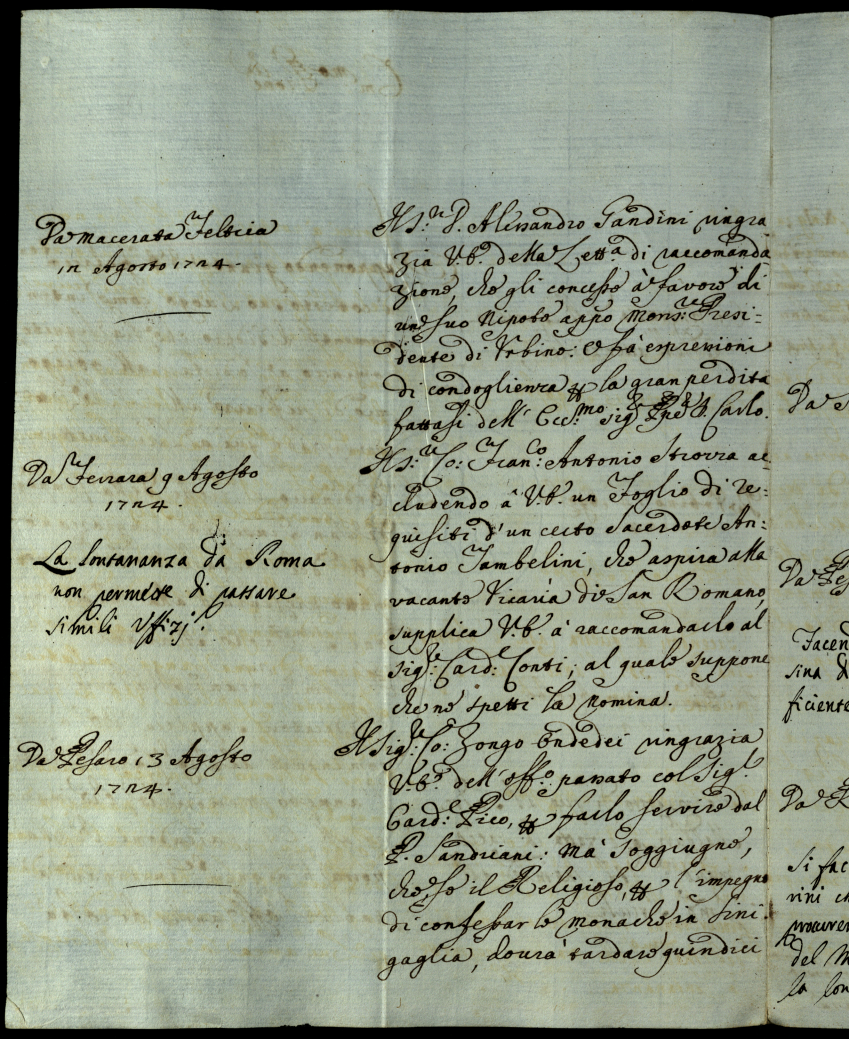 Da Macerata Feltria
in Agosto 1724.
Il S.r D. Alessandro Gandini ringra
zia V.E. della Lett.a di raccomanda
zione, che gli concesse à favore di
un suo Nipote appo Mons.r Presi=
dente di Urbino: e fà espressioni
di condoglienza per la gran perdita
fattasi dell' Ecc.mo Sig.r D. Carlo.
Da Ferrara 9 Agosto
1724.
La lontananza da Roma
non permette di passare
simili Uffizj.
Il S.r Co: Fran.co Antonio Strozza ac
cludendo à V.E. un Foglio di re=
quisiti d'un certo Sacerdote An=
tonio Tambelini, che aspira alla
vacante Vicaria di San Romano,
supplica V.E. à raccomandarlo al
Sig.r Card: Conti, al quale suppone
che ne spetti la Nomina.
Da Pesaro 13 Agosto
1724.
Il Sig.r Co: Zongo Ondedei ringrazia
V.E. dell' Off.o passato col Sig.r
Card: Pico, per farlo servire dal
P. Sandriani: Mà soggiugne,
che, se il Religioso, per l'impegno
di confessar le monache in Sini
gaglia, dovrà tardare quindici
Da
Da Pes
Facen
sina d
ficiente
Da
Si fac
rini c
procurer
del M
la lon